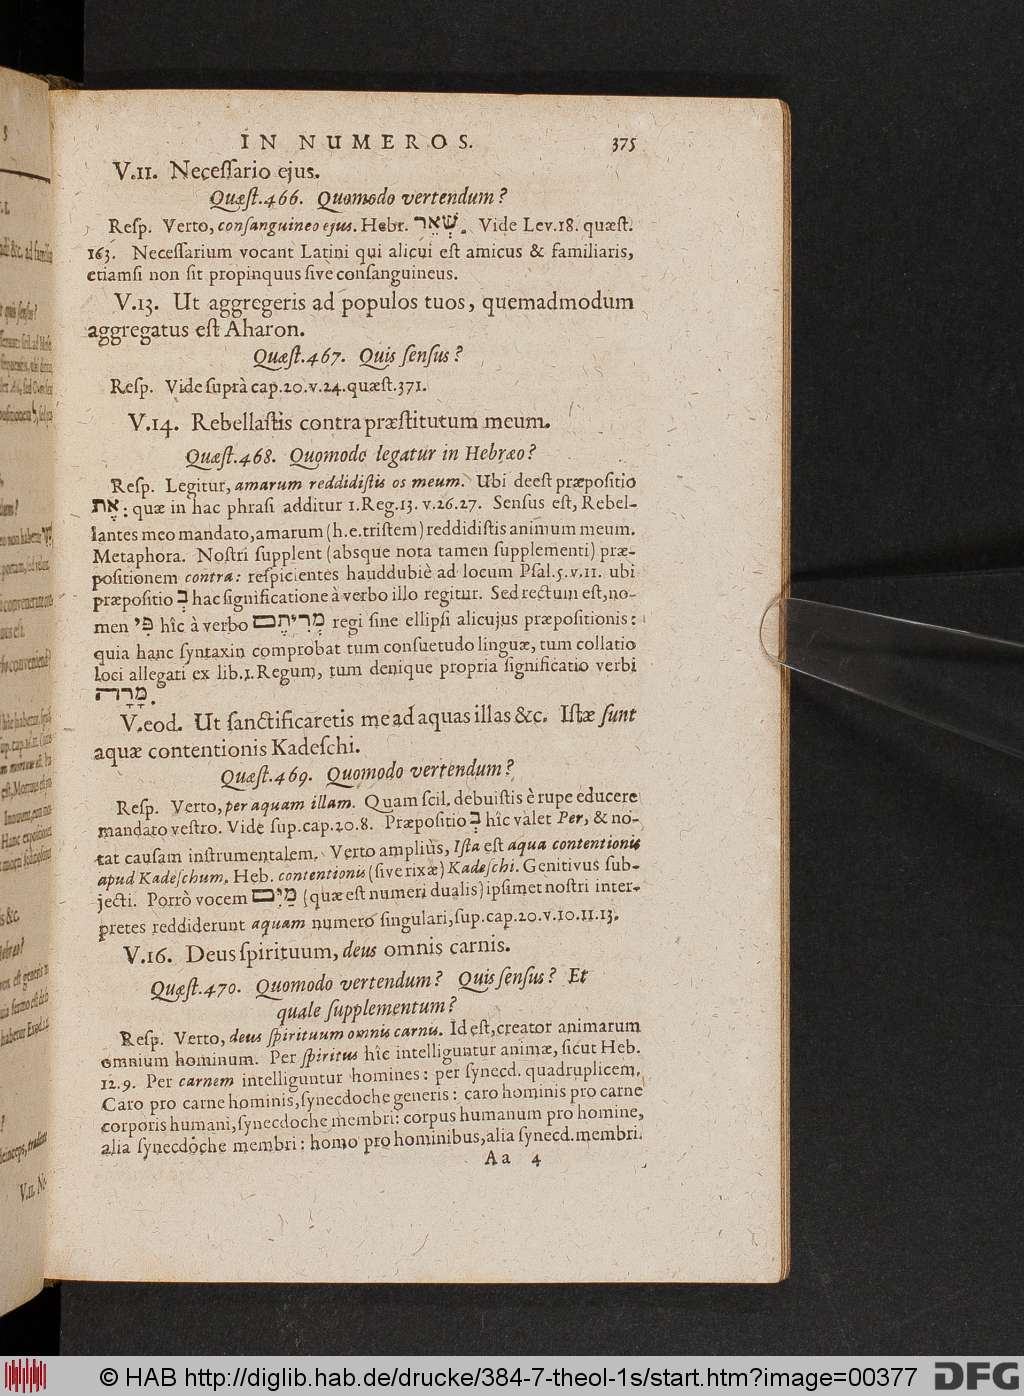 IN NUMEROS. 375
V.11. Necessario ejus.
Quæst.466. Quomodo vertendum?
Resp. Verto, consanguineo ejus. Hebr. שְׁאֵר. Vide Lev.18. quæst.
163. Necessarium vocant Latini qui alicui est amicus & familiaris,
etiamsi non sit propinquus sive consanguineus.
V.13. Ut aggregeris ad populos tuos, quemadmodum
aggregatus est Aharon.
Quæst.467. Quis sensus?
Resp. Vide suprà cap.20.v.24.quæst.371.
V.14. Rebellastis contra præstitutum meum.
Quæst.468. Quomodo legatur in Hebræo?
Resp. Legitur, amarum reddidistis os meum. Ubi deest præpositio
אֶת: quæ in hac phrasi additur 1.Reg.13.v.26.27. Sensus est, Rebel-
lantes meo mandato, amarum (h.e.tristem) reddidistis animum meum.
Metaphora. Nostri supplent (absque nota tamen supplementi) præ-
positionem contra: respicientes hauddubiè ad locum Psal.5.v.11. ubi
præpositio בְּ hac significatione à verbo illo regitur. Sed rectum est, no-
men פִּי hîc à verbo מְרִיתֶם regi sine ellipsi alicujus præpositionis:
quia hanc syntaxin comprobat tum consuetudo linguæ, tum collatio
loci allegati ex lib.1.Regum, tum denique propria significatio verbi
מָרָה.
V.eod. Ut sanctificaretis me ad aquas illas &c. Istæ sunt
aquæ contentionis Kadeschi.
Quæst.469. Quomodo vertendum?
Resp. Verto, per aquam illam. Quam scil. debuistis è rupe educere
mandato vestro. Vide sup.cap.20.8. Præpositio בְּ hîc valet Per, & no-
tat causam instrumentalem. Verto ampliùs, Ista est aqua contentionis
apud Kadeschum. Heb. contentionis (sive rixæ) Kadeschi. Genitivus sub-
jecti. Porrò vocem מַיִם (quæ est numeri dualis) ipsimet nostri inter-
pretes reddiderunt aquam numero singulari, sup.cap.20.v.10.11.13.
V.16. Deus spirituum, deus omnis carnis.
Quæst.470. Quomodo vertendum? Quis sensus? Et
quale supplementum?
Resp. Verto, deus spirituum omnis carnis. Id est, creator animarum
omnium hominum. Per spiritus hîc intelliguntur animæ, sicut Heb.
12.9. Per carnem intelliguntur homines: per synecd. quadruplicem.
Caro pro carne hominis, synecdoche generis: caro hominis pro carne
corporis humani, synecdoche membri: corpus humanum pro homine,
alia synecdoche membri: homo pro hominibus, alia synecd. membri.
Aa 4
© HAB http://diglib.hab.de/drucke/384-7-theol-1s/start.htm?image=00377
DFG